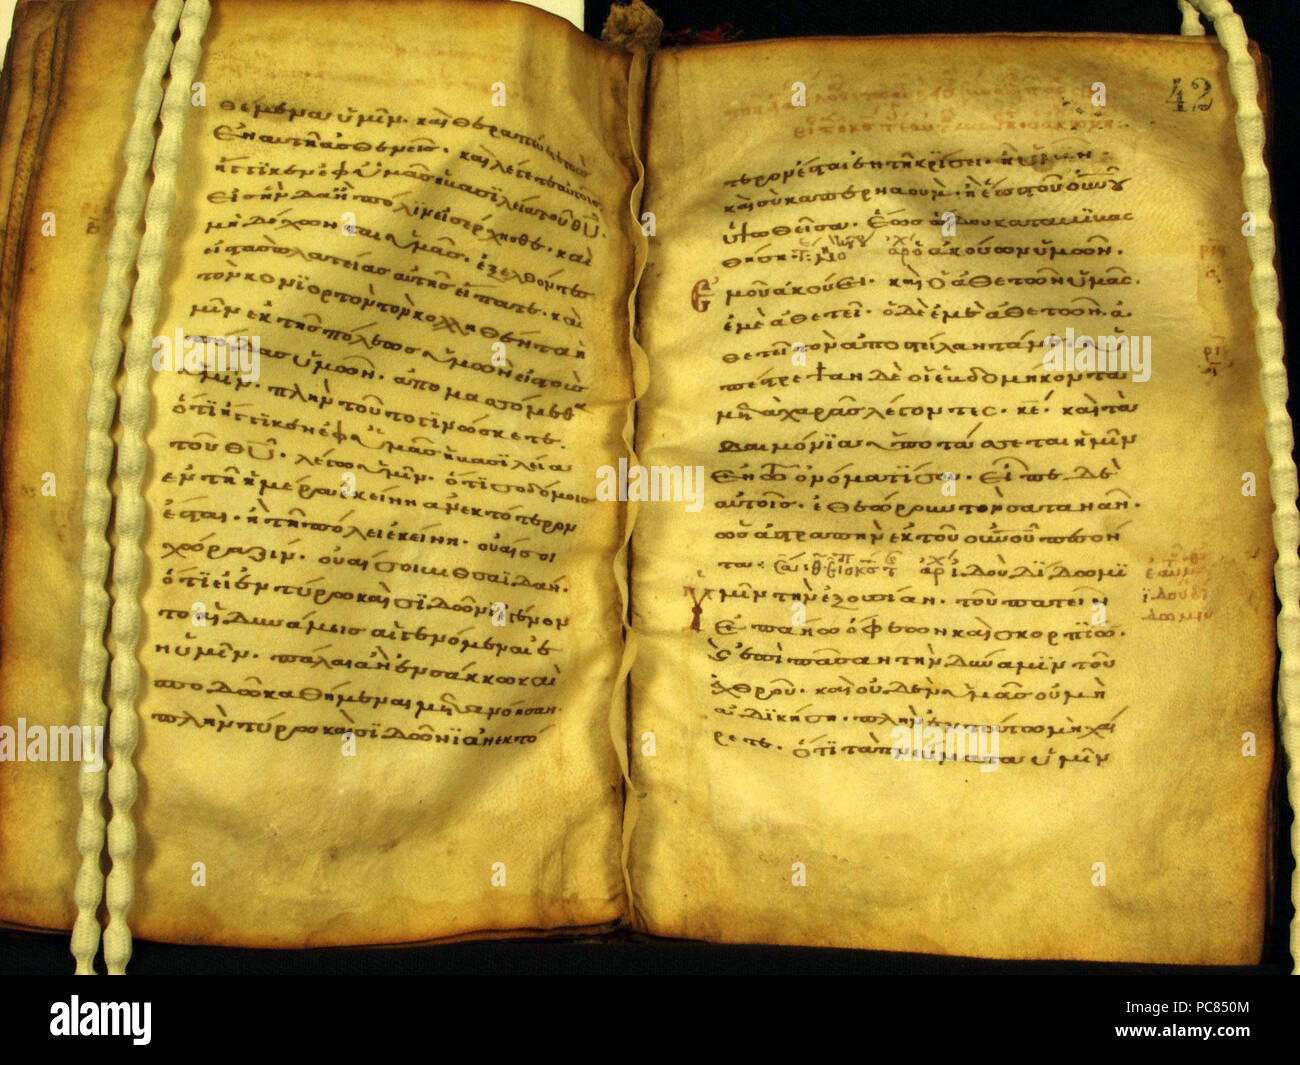 θέμενα ὑμῖν· καὶ θεραπεύετε τοὺς
ἐν αὐτῇ ἀσθενεῖς· καὶ λέγετε αὐτοῖς
ἤγγικεν ἐφ' ὑμᾶς ἡ βασιλεία τοῦ θῦ.
εἰς ἣν δἂν πόλιν εἰσέρχησθε· καὶ
μὴ δέχωνται ὑμᾶς. ἐξελθόντες
εἰς τὰς πλατείας αὐτῆς εἴπατε· καὶ
τὸν κονιορτὸν τὸν κολληθέντα ἡ
μῖν ἐκ τῆς πόλεως ὑμῶν εἰς τοὺς
πόδας ὑμῶν. ἀπομασσόμεθα
ὑμῖν. πλὴν τοῦτο γινώσκετε.
ὅτι ἤγγικεν ἐφ' ὑμᾶς ἡ βασιλεία
τοῦ θῦ. λέγω ὑμῖν. ὅτι σοδόμοις
ἐν τῇ ἡμέρα ἐκείνη ἀνεκτότερον
ἔσται· ἢ τῇ πόλει ἐκείνη. οὐαί σοι
χωραζίν. οὐαί σοι βιθσαϊδάν.
ὅτι εἰ ἐν τύρω καὶ σιδῶνι ἐγένον
το αἱ δυνάμεις αἱ γενόμεναι ἐ
ν ὑμῖν. πάλαι ἂν ἐν σάκκω καὶ
σποδῶ καθήμεναι μετενόησαν.
πλὴν τύρω καὶ σιδῶνι ἀνεκτό
42
τερον ἔσται ἐν τῇ κρίσει· ἢ ὑμῖν·
καὶ σὺ καπερναούμ. ἡ ἕως τοῦ οὐνοῦ
ὑψωθεῖσα. ἕως ἅδου καταβιβας
θήση· ἀρχ ὁ ἀκούων ὑμῶν.
ἐμοῦ ἀκούει. καὶ ὁ ἀθετῶν ὑμᾶς.
ἐμὲ ἀθετεῖ. ὁ δὲ ἐμὲ ἀθετῶν. ἀ
θετεῖ τὸν ἀποστείλαντά με. ὑ
πέστρεψαν δὲ οἱ ἑβδομήκοντα
μετὰ χαρᾶς λέγοντες. κε. καὶ τὰ
δαιμόνια ὑποτάσσεται ἡμῖν
ἐν τῶ ὀνόματί σου. εἶπε δὲ
αὐτοῖς. ἐθεώρουν τὸν σατανᾶν.
ὡς ἀστραπὴν ἐκ τοῦ οὐνοῦ πεσόν
τα· ἀρχ ἰδοὺ δίδωμι
ὑμῖν τὴν ἐξουσίαν. τοῦ πατεῖν
ἐπάνω ὄφεων καὶ σκορπίων.
καὶ ἐπὶ πᾶσαν τὴν δύναμιν τοῦ
ἐχθροῦ. καὶ οὐδὲν ὑμᾶς οὐ μὴ
ἀδικήση. πλὴν ἐν τούτω μὴ χαί
ρετε. ὅτι τὰ πνεύματα ὑμῖν
ἰδοὺ δί
δωμι ὑ
alamy
Image ID: PC850M
www.alamy.com